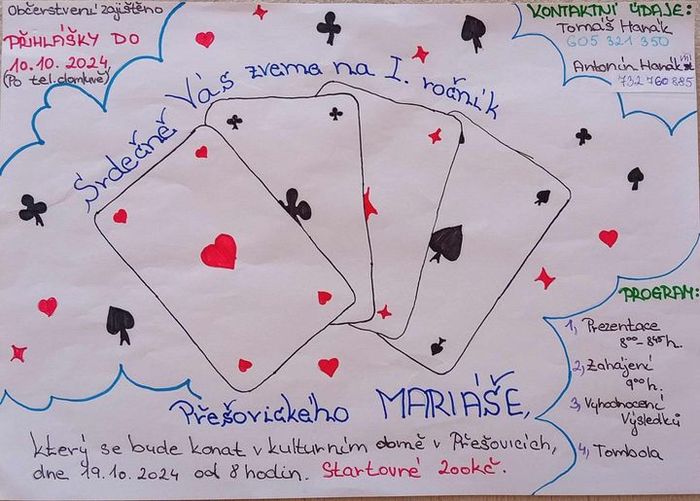 Občerstvení zajištěno
PŘIHLÁŠKY DO
10.10.2024
(Po tel.domluvě)
KONTAKTNÍ ÚDAJE:
Tomáš Hanák
605 321 350
Antonín Hanák
732 760 885
Srdečně Vás zveme na I. ročník
Přešovického MARIÁŠE,
který se bude konat v kulturním domě v Přešovicích,
dne 19.10.2024 od 8 hodin. Startovné 200kč.
PROGRAM:
1, Prezentace
8⁰⁰-8⁴⁵h.
2, Zahájení
9⁰⁰h.
3, Vyhodnocení
Výsledků
4, Tombola